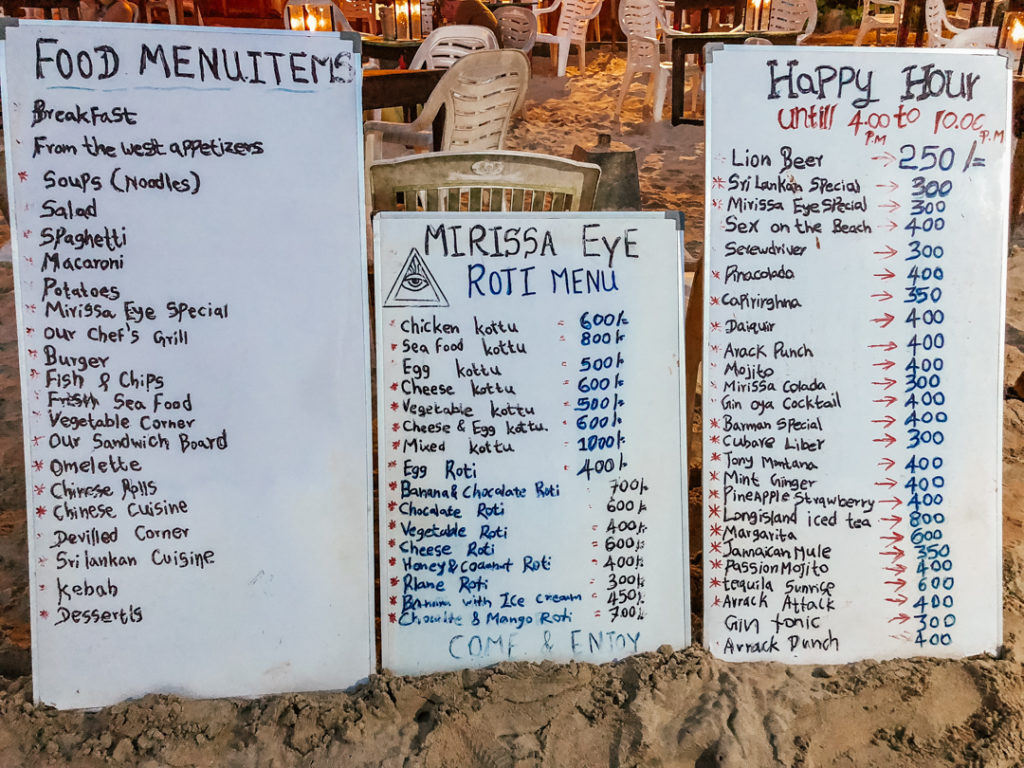 FOOD MENUITEMS
Breakfast
From the west appetizers
* Soups (Noodles)
* Salad
* Spaghetti
* Macaroni
* Potatoes
* Mirissa Eye Special
* our Chef's Grill
* Burger
* Fish & Chips
* Frish Sea Food
* Vegetable Corner
* Our Sandwich Board
* Omelette
* Chinese Rolls
* Chinese Cuisine
* Devilled Corner
* Sri lankan Cuisine
* Kebab
* Dessertis
MIRISSA EyE
ROTI MENU
* Chicken kottu = 600/=
* Sea Food kottu = 800/=
* Egg kottu = 500/=
* Cheese kottu = 600/=
* Vegetable kottu = 500/=
* Cheese & Egg kottu. = 600/=
* Mixed kottu = 1000/=
* Egg Roti = 400/=
* Banana & Chocolate Roti 700/=
* Chocolate Roti = 600/=
* Vegetable Roti = 400/=
* Cheese Roti = 600/=
* Honey & Coconut Roti = 400/=
* Plane Roti = 300/=
* Banana with Ice Cream = 450/=
* Choclate & Mango Roti = 700/=
COME & ENJOY
Happy Hour
untill 4.00 P.M to 10.00 P.M
Lion Beer → 250/=
* Sri Lankan Special → 300
* Mirissa Eye Special → 300
Sex on the Beach → 400
Screwdriver → 300
* Pinacolada → 400
* Capirirghna → 350
* Daiquir → 400
Arack Punch → 400
* Mojito → 400
* Mirissa Colada → 300
* Gin oya Cocktail → 400
* Barman Special → 400
* Cubare Liber → 300
* Tony Montana → 400
* Mint Ginger → 400
* PineApple Strawberry → 400
* Longisland iced tea → 800
* Margarita → 600
* Jamaican Mule → 350
* Passion Mojito → 400
* tequila Sunrise → 600
* Arrack Attack → 400
Gin tonic → 300
Arrack Punch → 400